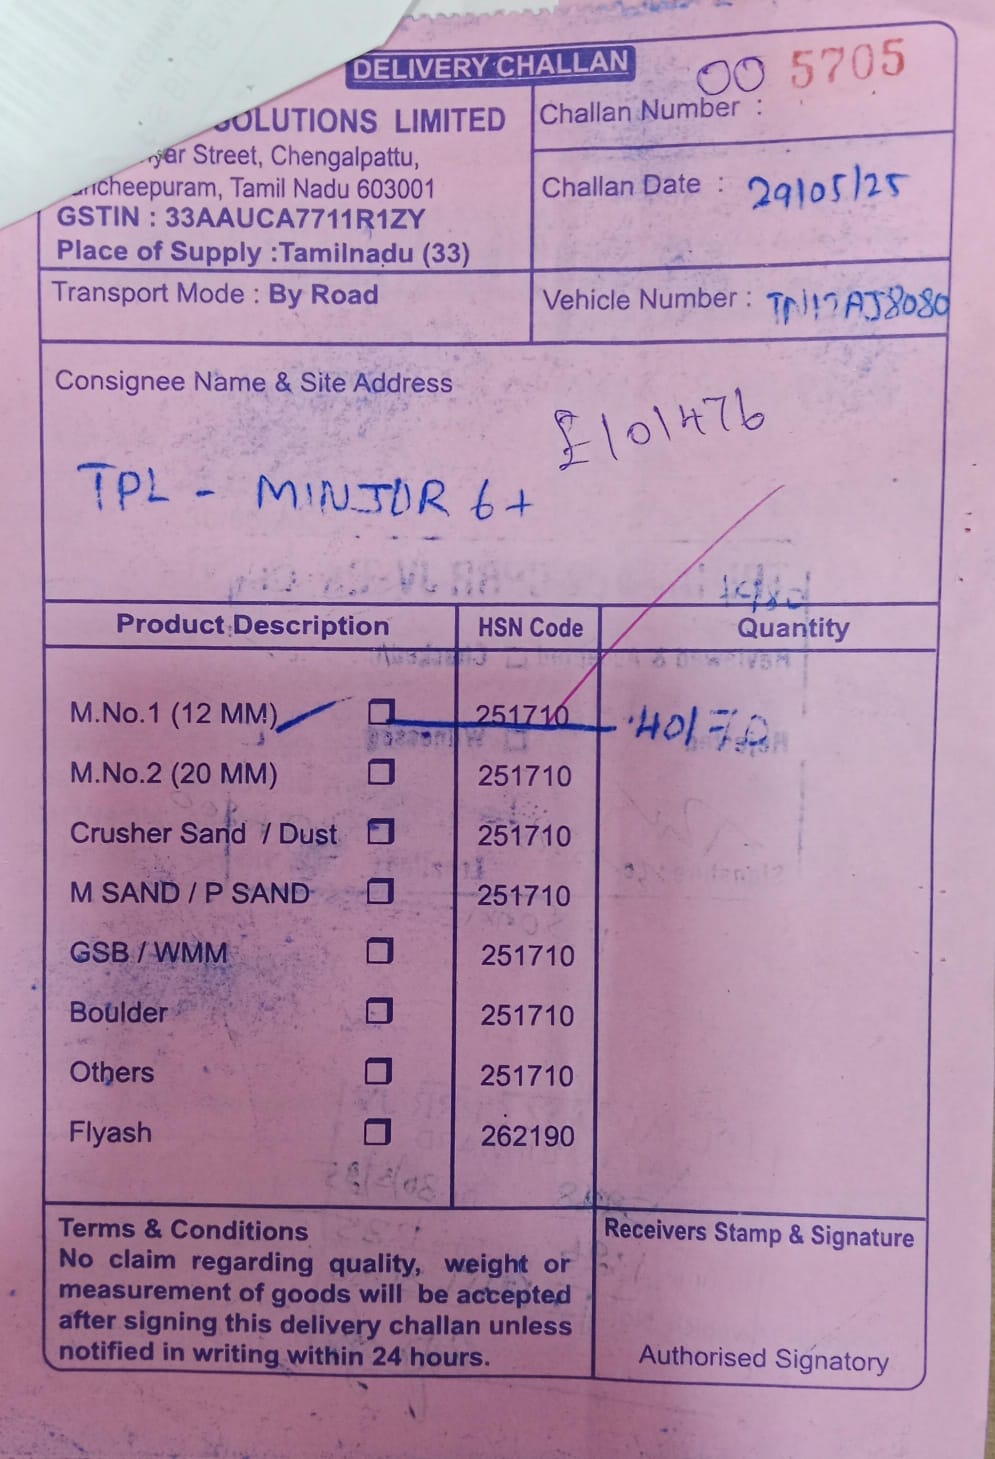 DELIVERY CHALLAN
OO 5705
SOLUTIONS LIMITED
Challan Number :
Street, Chengalpattu,
Tamil Nadu 603001
GSTIN : 33AAUCA7711R1ZY
Place of Supply :Tamilnadu (33)
Challan Date : 29/05/25
Transport Mode : By Road
Vehicle Number :
Consignee Name & Site Address
£101476
TPL - MINJUR 6+
Product Description HSN Code Quantity
M.No.1 (12 MM) 251710
M.No.2 (20 MM) 251710
Crusher Sand / Dust 251710
M SAND / P SAND 251710
GSB / WMM 251710
Boulder 251710
Others 251710
Flyash 262190
Terms & Conditions
No claim regarding quality, weight or
measurement of goods will be accepted
after signing this delivery challan unless
notified in writing within 24 hours.
Receivers Stamp & Signature
Authorised Signatory